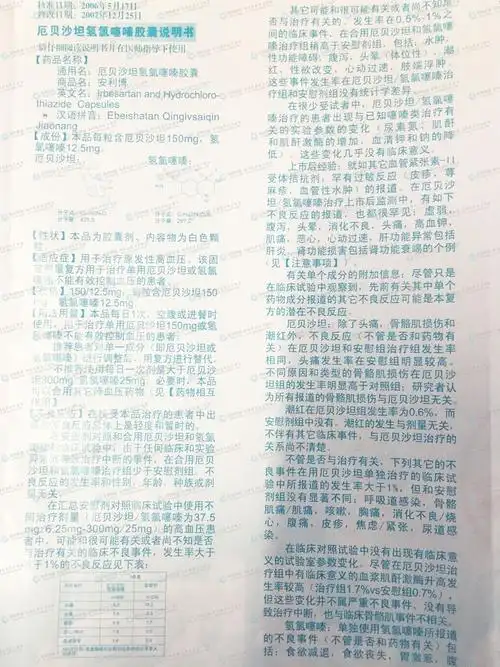 核准日期：2006年5月17日
修改日期：2007年12月25日
厄贝沙坦氢氯噻嗪胶囊说明书
请仔细阅读说明书并在医师指导下使用
【药品名称】
通用名：厄贝沙坦氢氯噻嗪胶囊
商品名：安利博
英文名：Irbesartan and Hydrochloro-
thiazide Capsules
汉语拼音：Ebeishatan Qinglvsaiqin
Jiaonang
【成份】本品每粒含厄贝沙坦150mg，氢
氯噻嗪12.5mg.
厄贝沙坦： 氢氯噻嗪：
【性状】本品为胶囊剂，内容物为白色颗
粒。
【适应症】用于治疗原发性高血压，该固
定剂量复方用于治疗单用厄贝沙坦或氢氯
噻嗪不能有效控制血压的患者。
【规格】150/12.5mg，每粒含厄贝沙坦150
氢氯噻嗪12.5mg
【用法用量】本品每日1次，空腹或进餐时
使用，用于治疗单用厄贝沙坦150mg或氢
氯噻嗪不能有效控制血压的患者。
推荐患者可对单一成份（即厄贝沙坦或
氢氯噻嗪）进行调整后，用复方进行替代。
不推荐使用每日一次剂量大于厄贝沙坦
300mg/氢氯噻嗪25mg。必要时，本品可
以合用其它降血压药物（见【药物相互
【不良反应】在接受本品治疗的患者中出
现的不良反应总体上是轻度和暂时的。
量无关。
在汇总安慰剂对照临床试验中使用不
同治疗剂量（厄贝沙坦/氢氯噻嗪为37.5
mg/6.25mg-300mg/25mg）的高血压患者
中，可能和很可能有关或者尚不知是否
与治疗有关的临床不良事件，发生率大于
于1%的不良反应见下表：
其它可能和很可能有关或者尚不知是
否与治疗有关的，发生率在0.5%-1%之
间的临床事件，在合用厄贝沙坦和氢氯
噻嗪治疗组稍高于安慰剂组，包括：水肿，
性功能障碍，腹泻，头晕（体位性），潮
红，性欲改变，心动过速，肢端浮肿。
这些事件发生率在厄贝沙坦/氢氯噻嗪治
疗组和安慰剂组没有统计学差异。
在很少受试者中，厄贝沙坦/氢氯噻
嗪治疗的患者出现与已知噻嗪类治疗有
关的实验参数的变化（尿素氮，肌酐
和肌酐激酶的增加，血清钾和钠的降
低），这些变化几乎没有临床意义。
上市后经验：就如其它血管紧张素-II
受体拮抗剂，罕有过敏反应（皮疹，荨
麻疹，血管性水肿）的报道。在厄贝沙
坦/氢氯噻嗪治疗上市后监测中，有如下
不良反应的报道，也都很罕见：虚弱，
腹泻，头晕，消化不良，头痛，高血钾，
肌痛，恶心，心动过速，肝功能异常包括
肝炎，肾功能损害包括肾功能衰竭的个例
（见【注意事项】）。
有关单个成分的附加信息：尽管只是
在临床试验中观察到，先前有关其中单个
药物成分报道的其它不良反应可能是本复
方的潜在不良反应。
厄贝沙坦：除了头痛，骨骼肌损伤和
潮红外，不良反应（不管是否和药物有
关）在厄贝沙坦和安慰剂组治疗组发生率
相同，头痛发生率在安慰组明显较高。
不同原因和类型的骨骼肌损伤在厄贝沙
坦组的发生率明显高于对照组；研究者认
为所有报道的骨骼肌损伤与厄贝沙坦无关。
潮红在厄贝沙坦组发生率为0.6%，而
安慰剂组中没有。潮红的发生与剂量无关，
不伴有其它临床事件，与厄贝沙坦治疗的
关系尚不清楚。
不管是否与治疗有关，下列其它的不
良事件在用厄贝沙坦单独治疗的临床试验
中所报道的发生率大于1%，但和安慰剂
组没有显著不同：呼吸道感染，骨骼
肌痛/肌痛，咳嗽，胸痛，消化不良/烧
心，腹痛，皮疹，焦虑/紧张，尿道感
染。
在临床对照试验中没有出现有临床意
义的试验室参数变化。尽管在厄贝沙坦治
疗组中有临床意义的血浆肌酐激酶升高发
生率较高（治疗组1.7%vs安慰组0.7%），
但这些变化并不属严重不良事件，没有导
致治疗中断，也与骨骼肌事件不相关。
氢氯噻嗪：单独使用氢氯噻嗪所报道
的不良事件（不管是否和药物有关）包
括：食欲减退，食欲丧失，胃激惹，腹